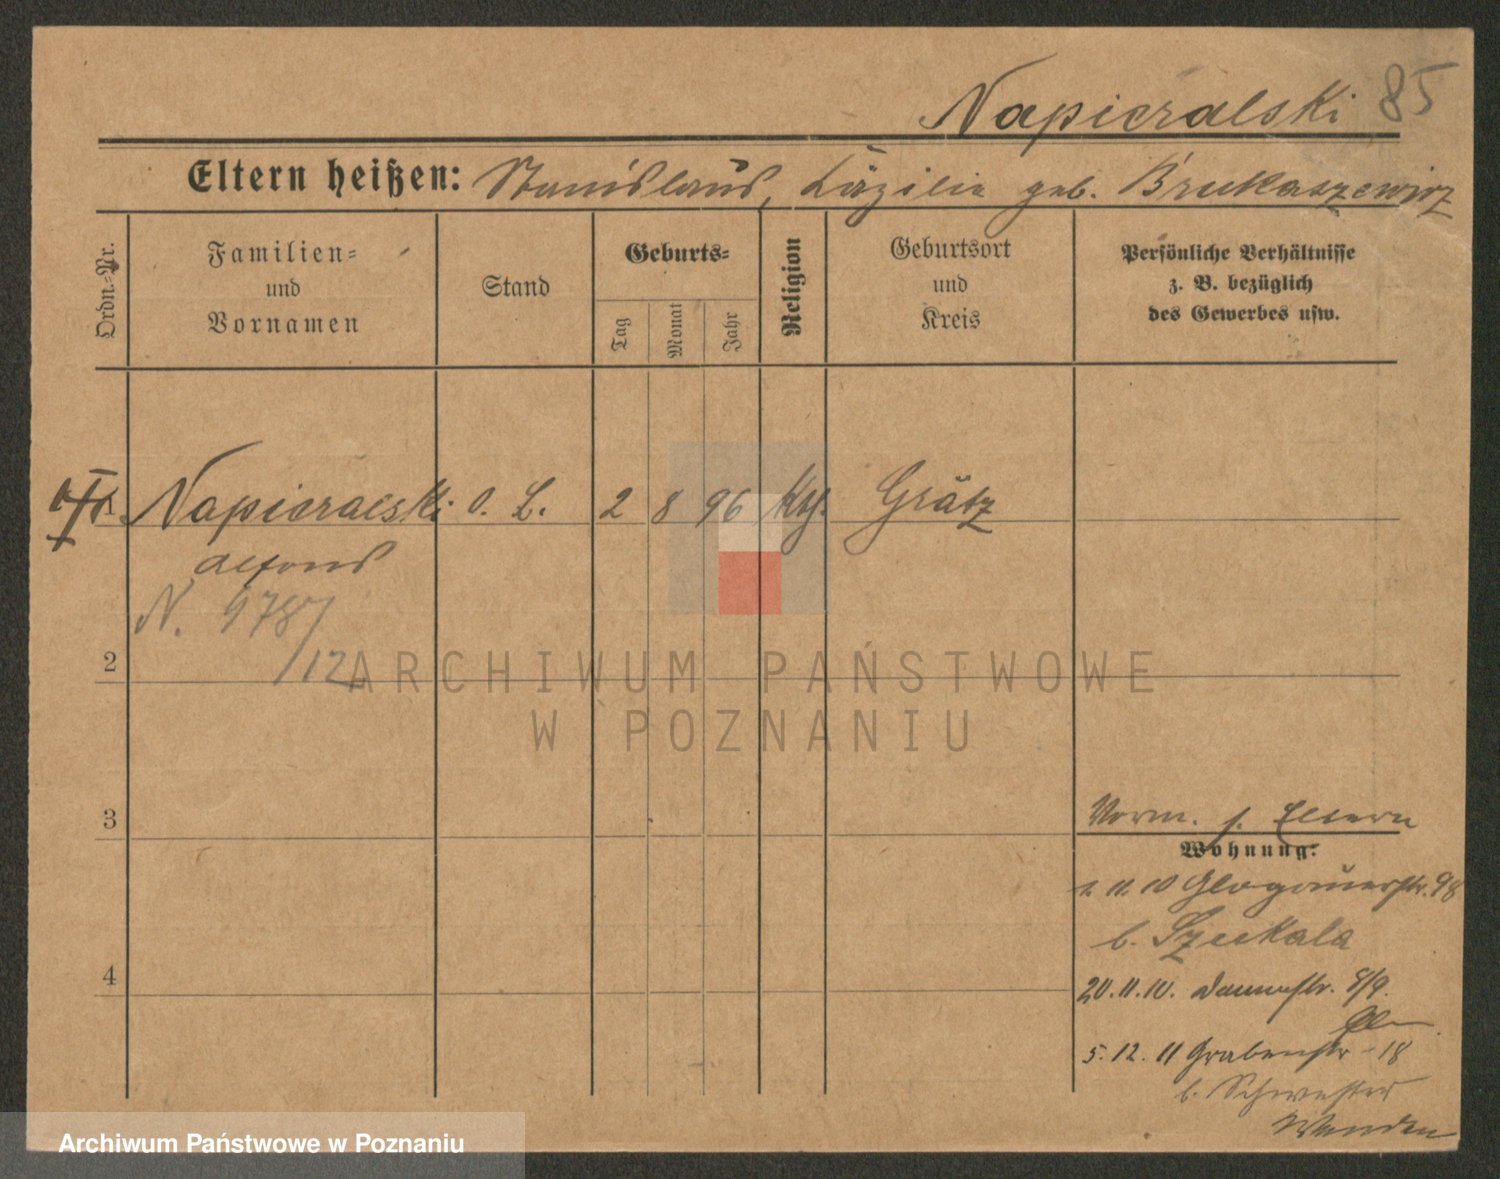 Napieralski 85
Eltern heißen: Stanislaus, Käzilie geb. Brukaszewicz
Ordn.-Nr.
Familien-
und
Vornamen
Stand
Geburts-
Tag
Monat
Jahr
Religion
Geburtsort
und
Kreis
Persönliche Verhältnisse
z. B. bezüglich
des Gewerbes usw.
Napieralski O. L. 2 8 96 Kth. Grätz
Alfons
N. 9787
/12
2
ARCHIWUM PAŃSTWOWE
W POZNANIU
3
Vorm. s. Eltern
Wohnung:
1. 11. 10 Glogauerstr. 98
b. Szukala
4
20. 11. 10. 8/9.
5. 12. 11 Grabenstr - 18
b. Schwester
Archiwum Państwowe w Poznaniu